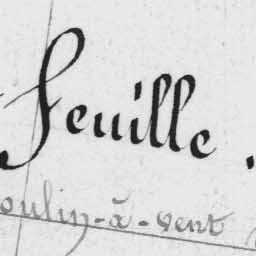 Feuille.
oulin-à-vent